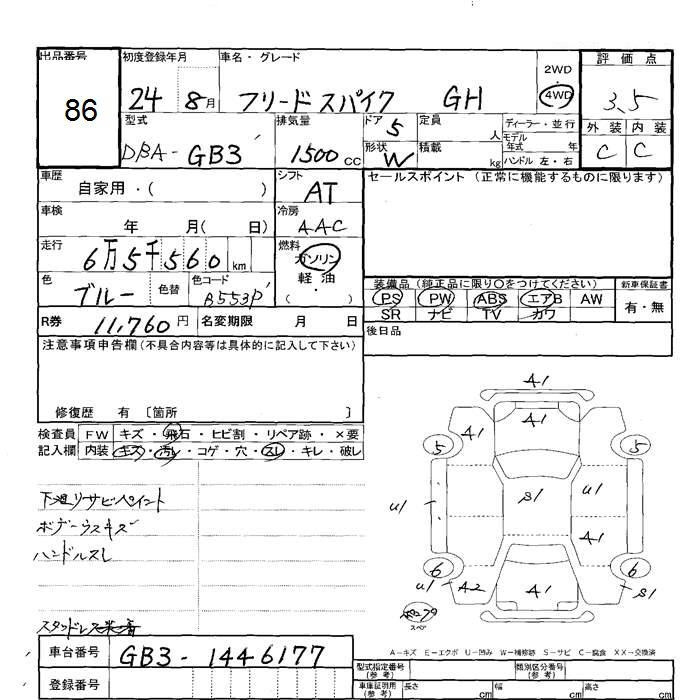 出品番号 初度登録年月 車名・グレード 2WD 評価点
86 24 8月 フリードスパイク GH 4WD 3.5
型式 排気量 ドア 5 定員 人 ディーラー・並行 外装 内装
DBA-GB3 1500cc 形状 W 積載 kg モデル年式 年 C C
ハンドル 左・右
車歴 自家用・( ) シフト AT セールスポイント(正常に機能するものに限ります)
車検 年 月( 日) 冷房 AAC
走行 6万5千560km 燃料 ガソリン
軽油
・( )
色 ブルー 色替 色コード B553P
装備品(純正品に限り○をつけてください) 新車保証書
PS PW ABS エアB AW 有・無
SR ナビ TV カワ
R券 11,760円 名変期限 月 日 後日品
注意事項申告欄(不具合内容等は具体的に記入して下さい)
修復歴 有 〔箇所 〕
検査員 FW キズ・飛石・ヒビ割・リペア跡・×要
記入欄 内装 キズ・汚レ・コゲ・穴・スレ・キレ・破レ
下廻リサビペイント
ボデーウスキズ
ハンドルスレ
スタッドレス装着
A1
A1 A1
5 5
U1 S1 U1
A1
6 6
U1 A2 A1 S1
スペ
A−キズ E−エクボ U−凹み W−補修跡 S−サビ C−腐食 XX−交換済
車台番号 GB3-1446177
登録番号
型式指定番号(参考) 類別区分番号(参考)
車庫証明用(参考) 長さ cm 幅 cm 高さ cm